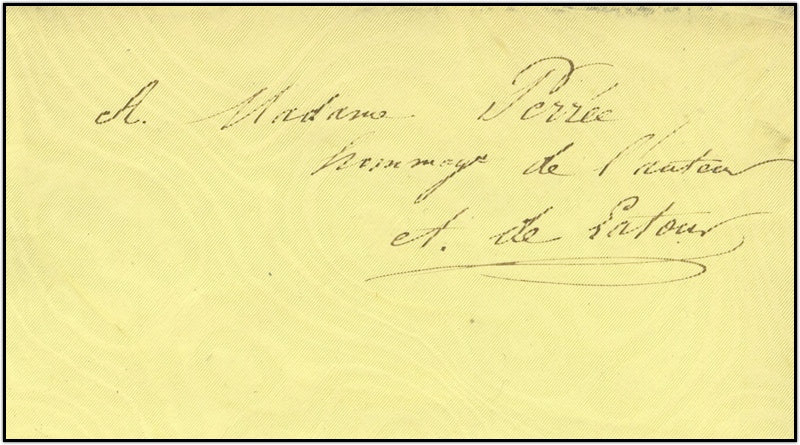 A. Madame Perrée
hommage de l'auteur
A. de Latour